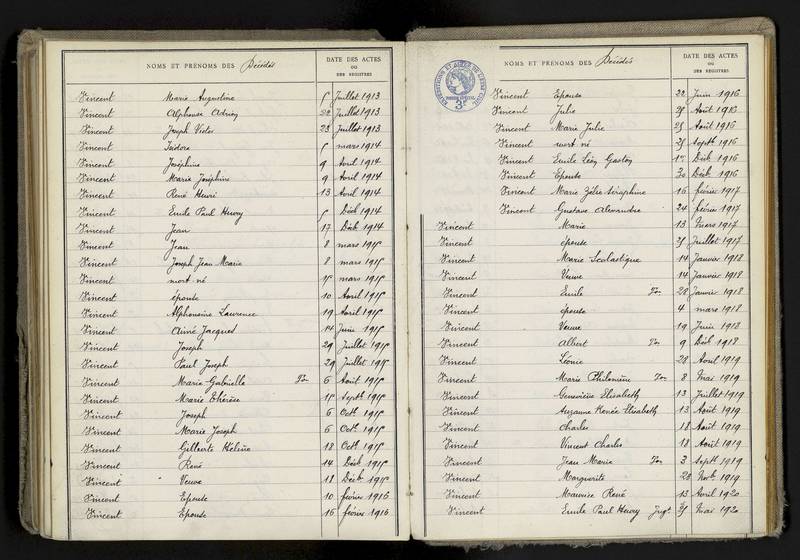 NOMS ET PRÉNOMS DES Décédés
DATE DES ACTES
OU
DES REGISTRES
Vincent Marie Augustine 5 Juillet 1913
Vincent Alphonse Adrien 22 Juillet 1913
Vincent Joseph Victor 23 Juillet 1913
Vincent Isidore 5 mars 1914
Vincent Joséphine 9 Avril 1914
Vincent Marie Joséphine 9 Avril 1914
Vincent René Henri 13 Avril 1914
Vincent Emile Paul Henry 5 Déc 1914
Vincent Jean 17 Déc 1914
Vincent Jean 8 mars 1915
Vincent Joseph Jean Marie 8 mars 1915
Vincent mort né 15 mars 1915
Vincent épouse 10 Avril 1915
Vincent Alphonsine Laurence 19 Avril 1915
Vincent Aimé Jacques 14 Juin 1915
Vincent Joseph 29 Juillet 1915
Vincent Paul Joseph 29 Juillet 1915
Vincent Marie-Gabrielle Ton 6 Août 1915
Vincent Marie Thérèse 15 Septb 1915
Vincent Joseph 6 Octb 1915
Vincent Marie Joseph 6 Octb 1915
Vincent Gilberte Hélène 18 Octb 1915
Vincent René 14 Déc 1915
Vincent Veuve 18 Déc 1915
Vincent Epouse 10 février 1916
Vincent Epouse 16 février 1916
NOMS ET PRÉNOMS DES Décédés
DATE DES ACTES
OU
DES REGISTRES
Vincent Epouse 22 Juin 1916
Vincent Julie 25 Août 1916
Vincent Marie Julie 25 Août 1916
Vincent mort né 25 Septb 1916
Vincent Emile Léon Gaston 1er Déc 1916
Vincent Epouse 30 Déc 1916
Vincent Marie Zélie Séraphine 16 février 1917
Vincent Gustave Alexandre 24 février 1917
Vincent Marie 13 Mars 1917
Vincent épouse 25 Juillet 1917
Vincent Marie Scolastique 14 Janvier 1918
Vincent Veuve 14 Janvier 1918
Vincent Emile Ton 28 Janvier 1918
Vincent épouse 4 mars 1918
Vincent Veuve 19 Juin 1918
Vincent Albert Ton 9 Déc 1918
Vincent Léonie 28 Avril 1919
Vincent Marie Philomène Ton 8 Mai 1919
Vincent Geneviève Elisabeth 13 Juillet 1919
Vincent Suzanne Renée Elisabeth 13 Août 1919
Vincent Charles 18 Août 1919
Vincent Vincent Charles 18 Août 1919
Vincent Jean Marie Ton 3 Septb 1919
Vincent Marguerite 28 Novb 1919
Vincent Maurice René 13 Avril 1920
Vincent Emile Paul Henry Jugt 25 Mai 1920